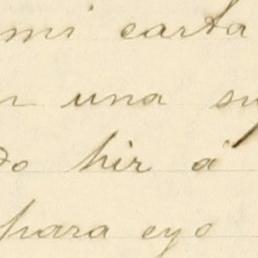 mi carta
una
do hir á
para eyo